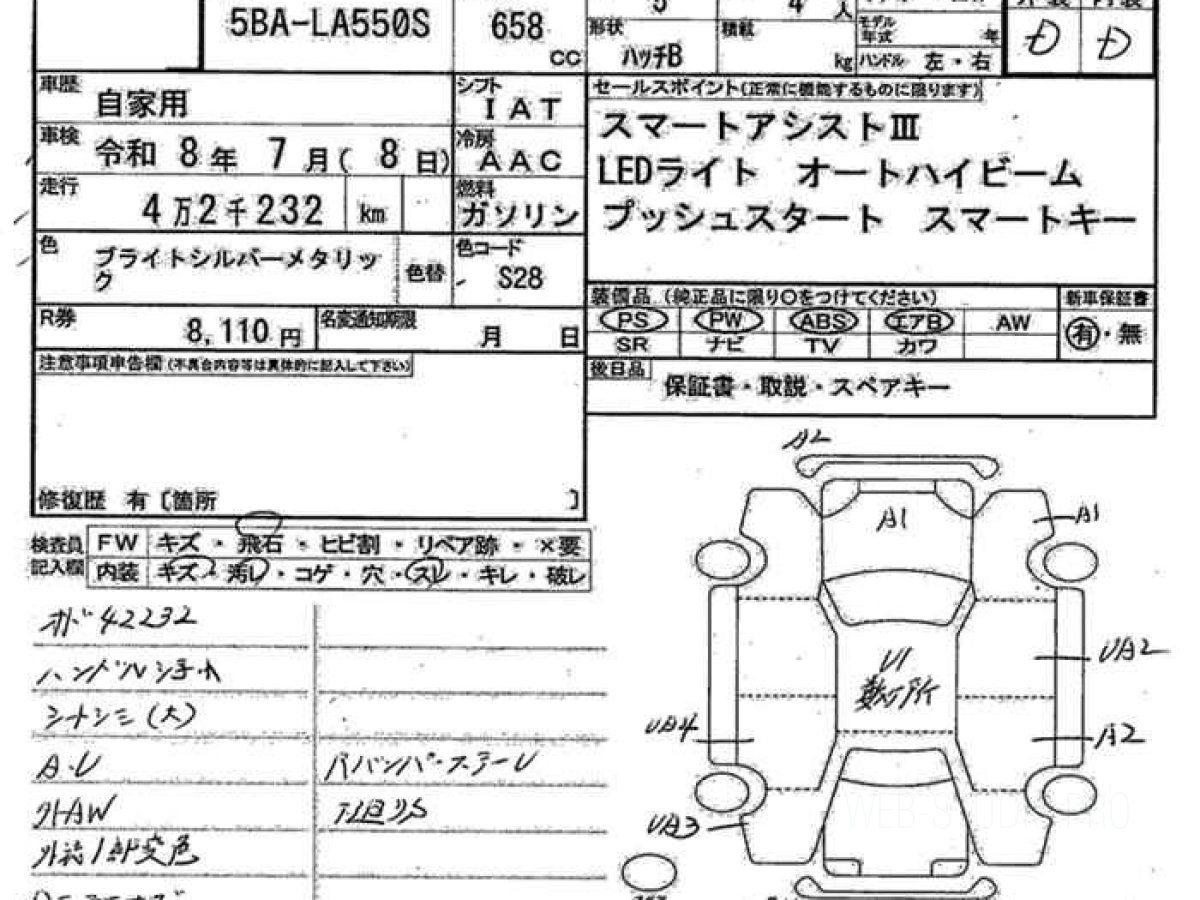 5BA-LA550S 658 CC
形状 ハッチB 積載 kg 人
モデル年式 年
ハンドル 左・右
外装 内装
D D
車歴 自家用 シフト IAT
車検 令和 8年 7月( 8日) 冷房 AAC
走行 4万2千232 km 燃料 ガソリン
色 ブライトシルバーメタリック 色替 色コード S28
R券 8,110円 名変通知期限 月 日
注意事項申告欄(不具合内容等は具体的に記入して下さい)
修復歴 有〔箇所 〕
セールスポイント(正常に機能するものに限ります)
スマートアシストⅢ
LEDライト オートハイビーム
プッシュスタート スマートキー
装備品 (純正品に限り○をつけてください) 新車保証書
PS PW ABS エアB AW 有・無
SR ナビ TV カワ
後日品 保証書・取説・スペアキー
検査員記入欄 FW キズ・飛石・ヒビ割・リペア跡・×要
内装 キズ・汚レ・コゲ・穴・スレ・キレ・破レ
オド 42232
ハンドルシュ手れ
シートシミ(大)
A・U
外AW
外装1部変色
A2
A1
A1
U1
数ヶ所
UA2
UA4
A2
UA3